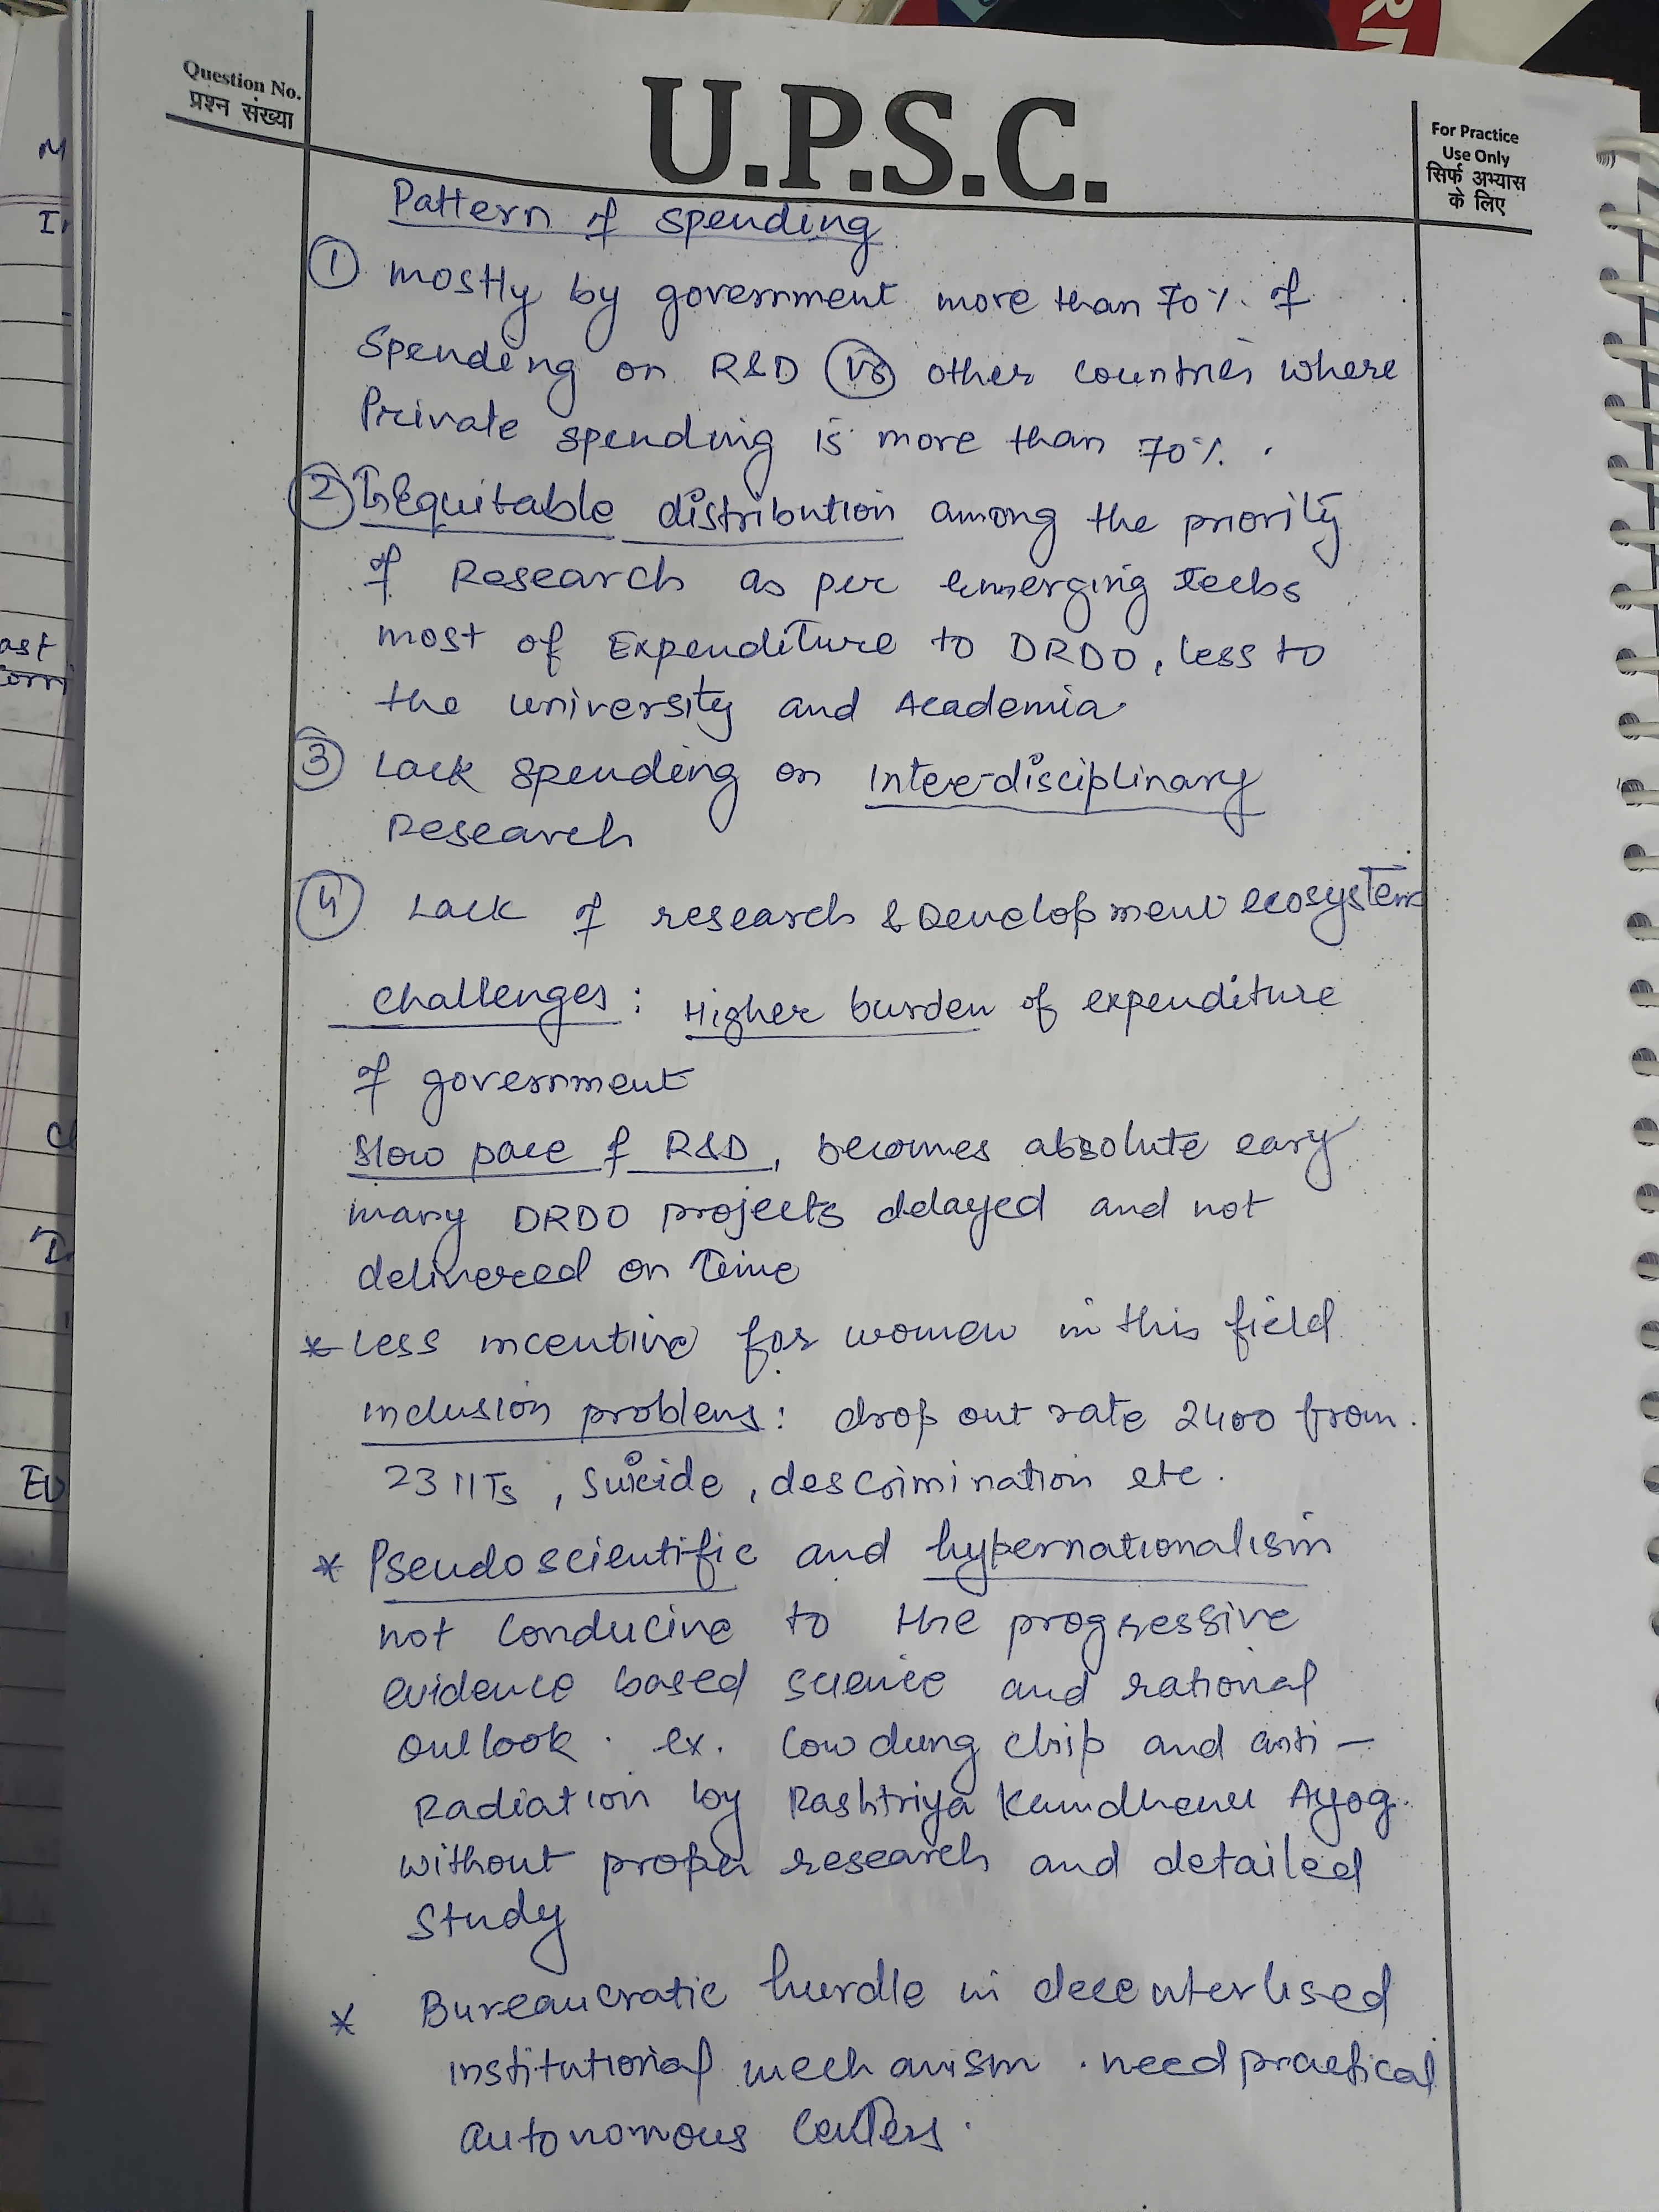 Question No.
प्रश्न संख्या
U.P.S.C.
For Practice
Use Only
सिर्फ अभ्यास
के लिए
Pattern of spending
① mostly by government more than 70% of
Spending on R&D vs other countries where
Private spending is more than 70%.
② Inequitable distribution among the priority
of Research as per emerging techs
most of Expenditure to DRDO, less to
the university and Academia
③ Lack spending on Inter-disciplinary
Research
④ Lack of research & Development ecosystem
challenges: Higher burden of expenditure
of government
Slow pace of R&D, becomes absolute eary
many DRDO projects delayed and not
delivered on time
* Less incentive for women in this field
inclusion problems: drop out rate 2400 from
23 IITs, Suicide, descrimination etc.
* Pseudoscientific and hypernationalism
not conducive to the progressive
evidence based science and rational
outlook. ex. Cow dung chip and anti-
Radiation by Rashtriya Kamdhenu Ayog.
without proper research and detailed
study
* Bureaucratic hurdle in decenterlised
institutional mechanism. need practical
autonomous Centers.
M
ast
EV